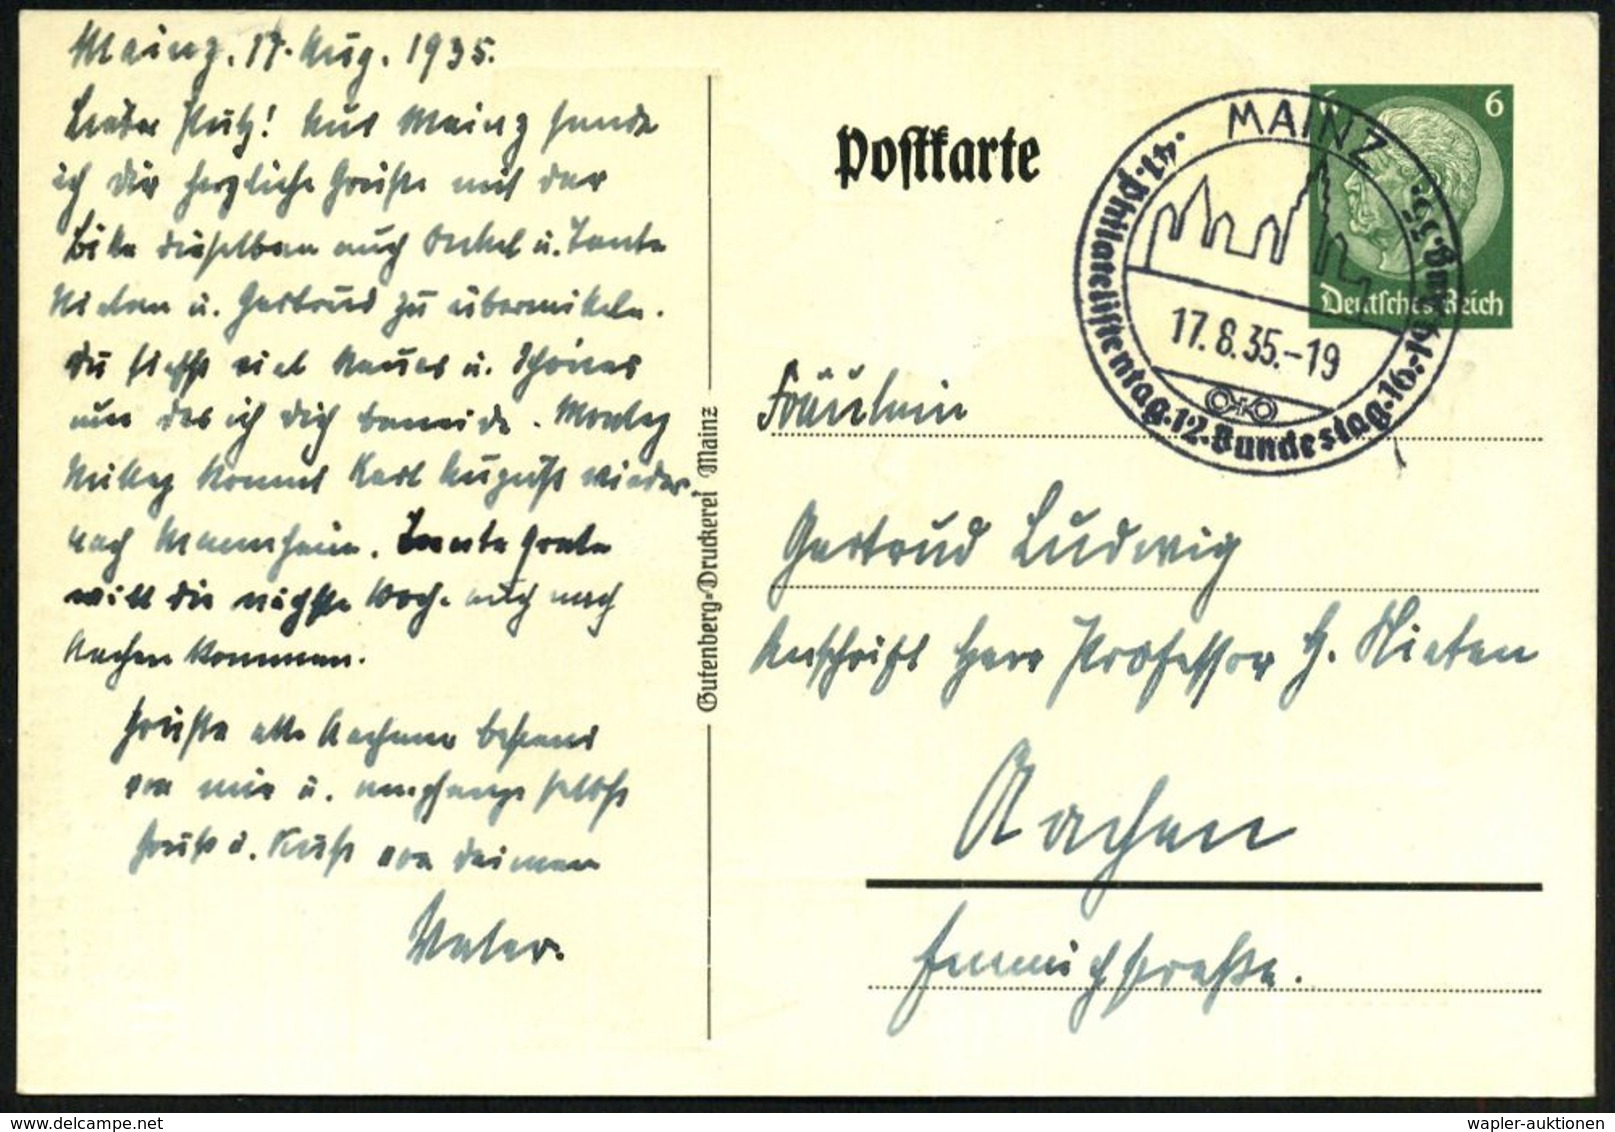 Mainz. 17. Aug. 1935.
Lieber Putz! Aus Mainz sende
ich Dir herzliche Grüße mit der
Bitte dieselben auch Onkel u. Tante
Nieten u. Gertrud zu übermitteln.
Du siehst viel Neues u. Schönes
um das ich Dich beneide. Montag
Mittag kommt Karl August wieder
nach Mannheim. Tante Grete
will die nächste Woche auch nach
Aachen kommen.
Grüße alle Aachener bestens
von mir u. empfange selbst
Gruß u. Kuß von deinem
Vater.
Gutenberg-Druckerei Mainz
Postkarte
MAINZ
·41. Philatelistentag·12·Bundestag·16.-19. Aug. 35·
17. 8. 35.-19
6 6
Deutsches Reich
Fräulein
Gertrud Ludwig
Anschrift Herr Professor H. Nieten
Aachen
wapler-auktionen